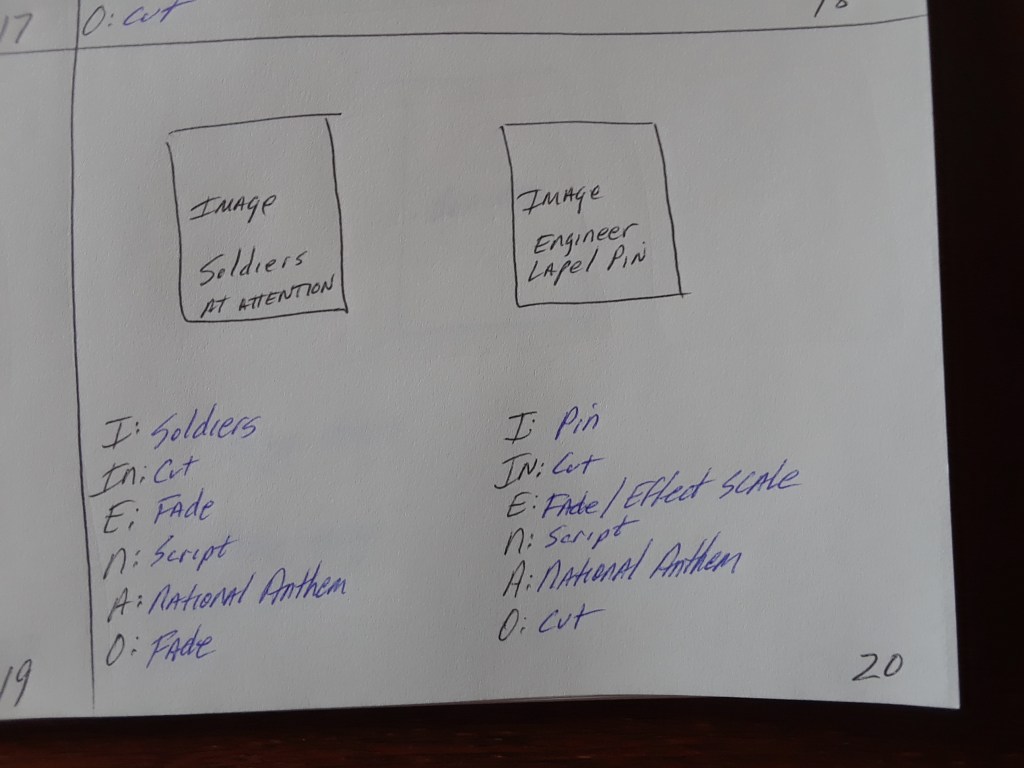 17
O: Cut
18
IMAGE
Soldiers
AT ATTENTION
IMAGE
Engineer
LAPel PiN
I: Soldiers
In: Cut
E: FAde
N: Script
A: NATIONAl Anthem
O: FAde
I: Pin
IN: Cut
E: FAde/Effect SCAle
N: Script
A: NATIONAl Anthem
O: Cut
19
20